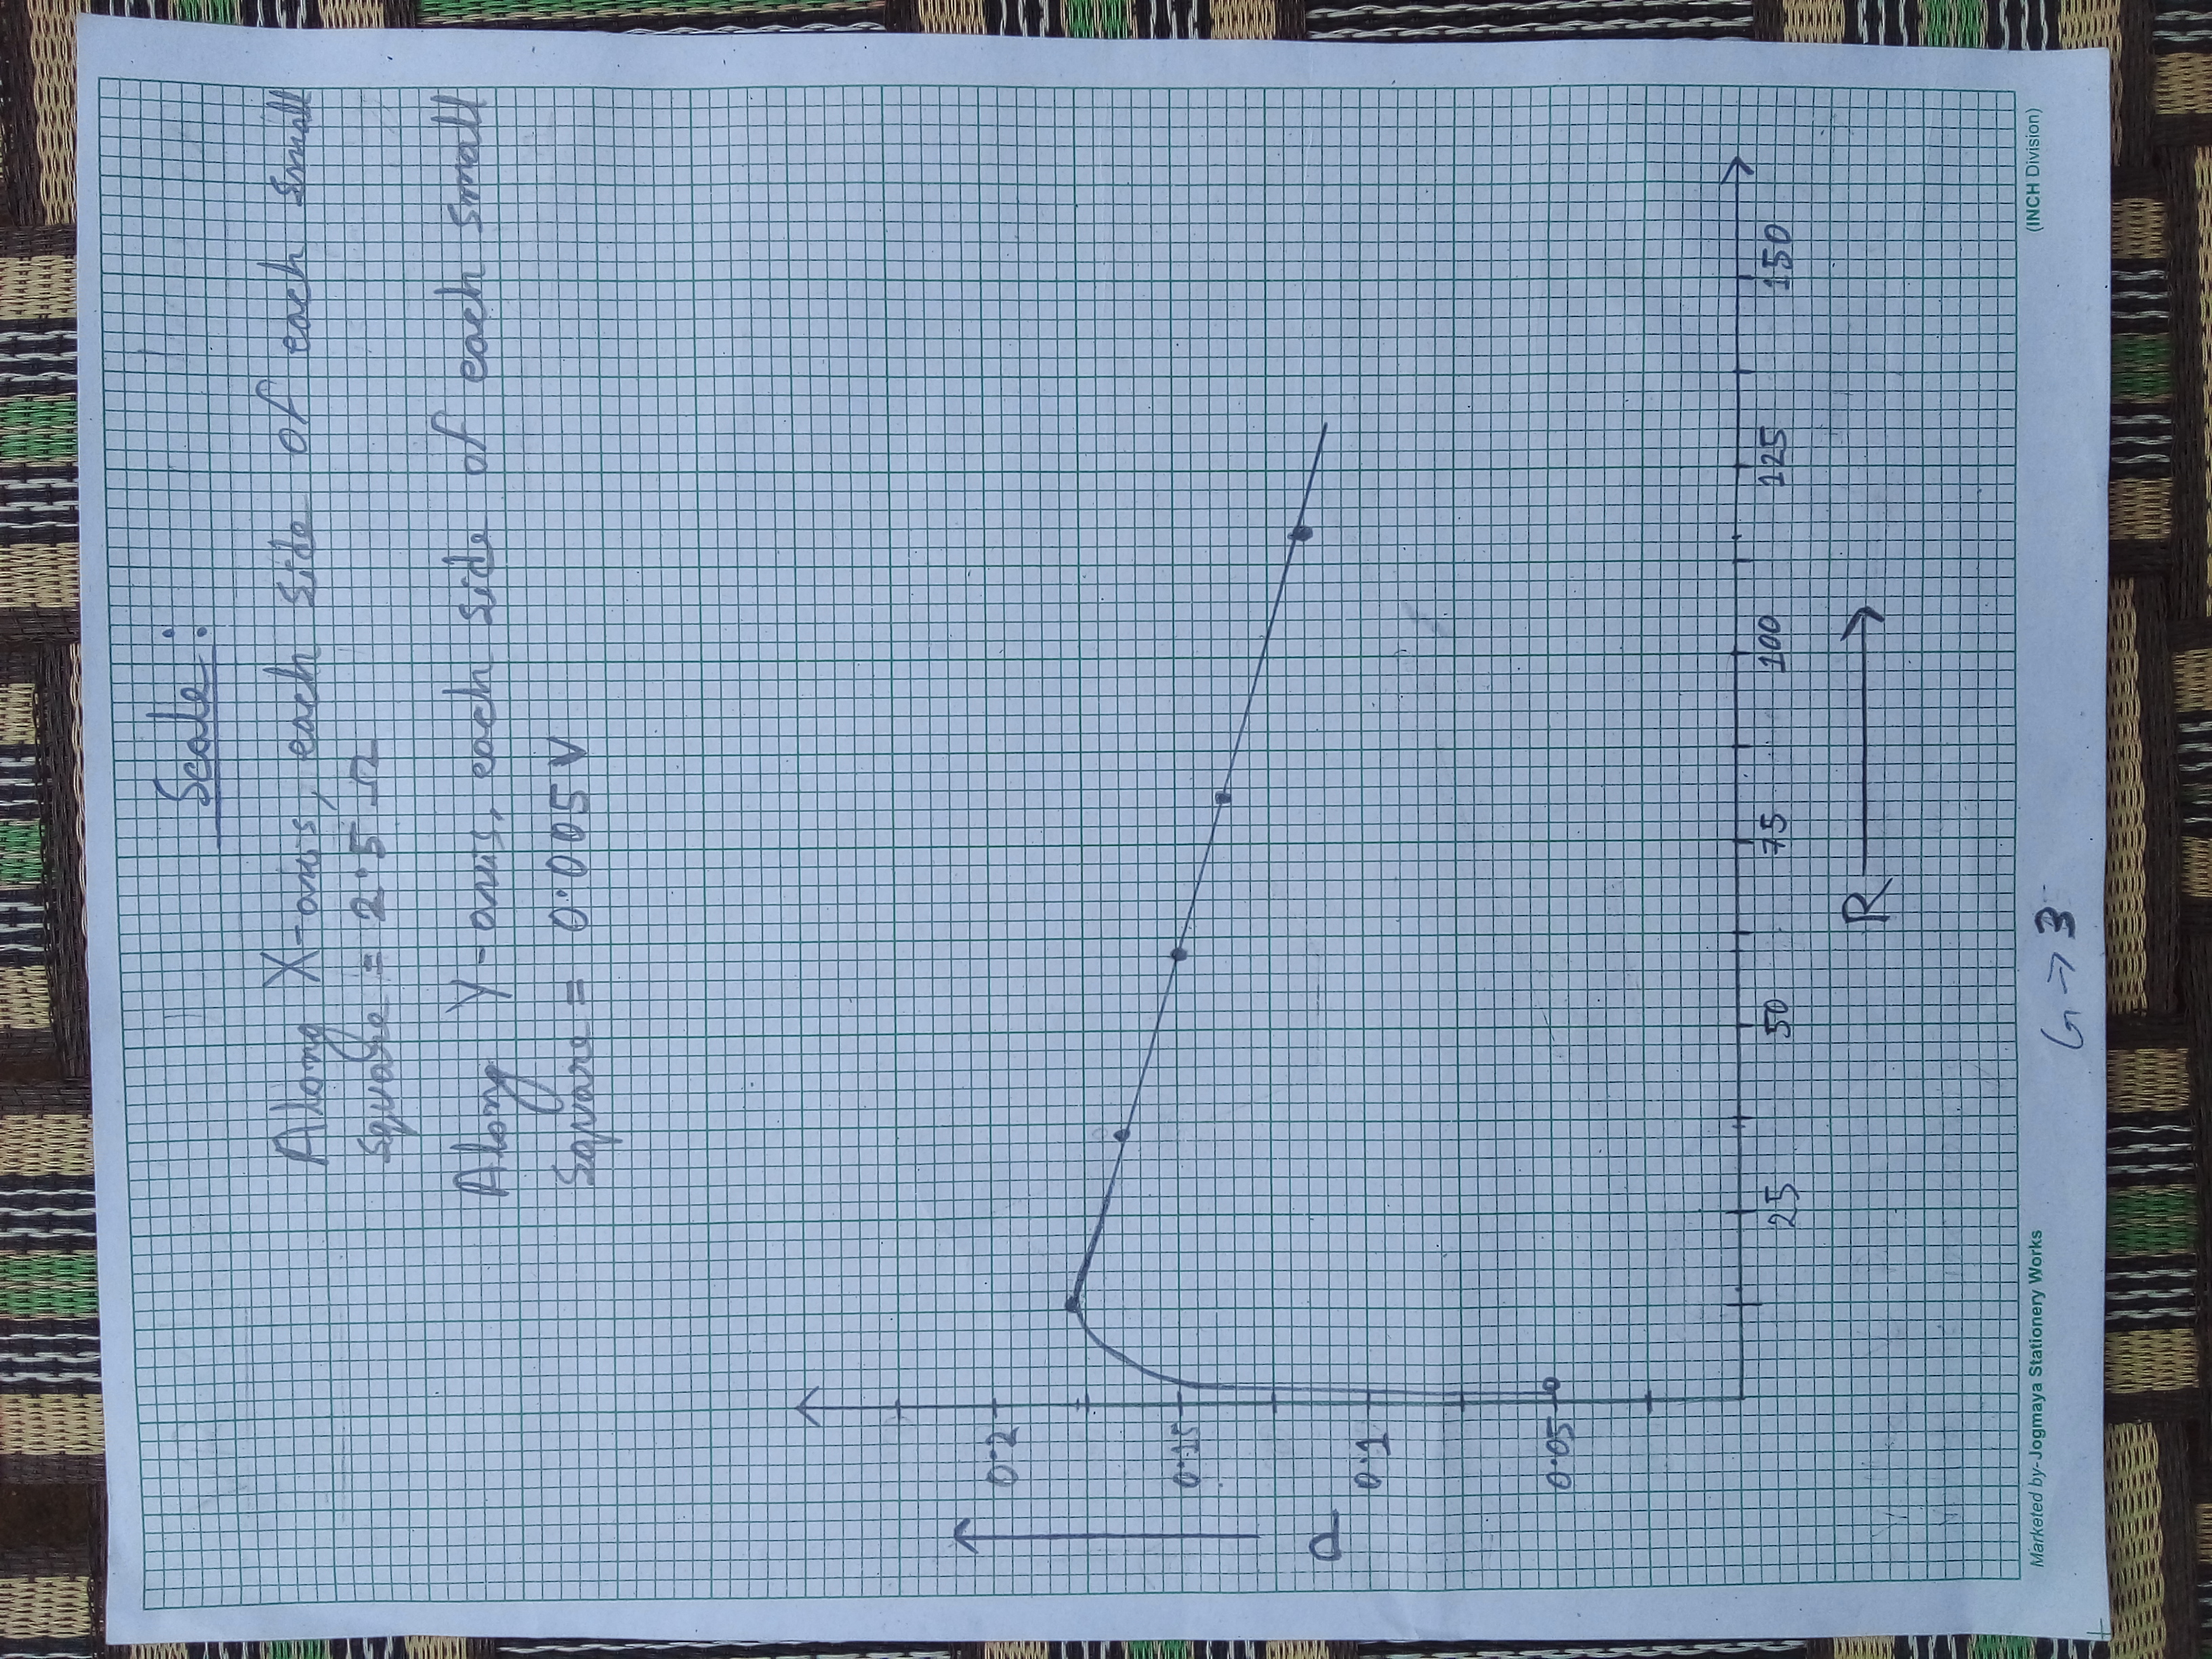 Scale:
Along X-axis, each side of each small
square = 2.5 Ω
Along Y-axis, each side of each small
square = 0.005 V
0.2
0.15
P
0.1
0.05
25 50 75 100 125 150
R
Marketed by-Jogmaya Stationery Works
(INCH Division)
G → 3